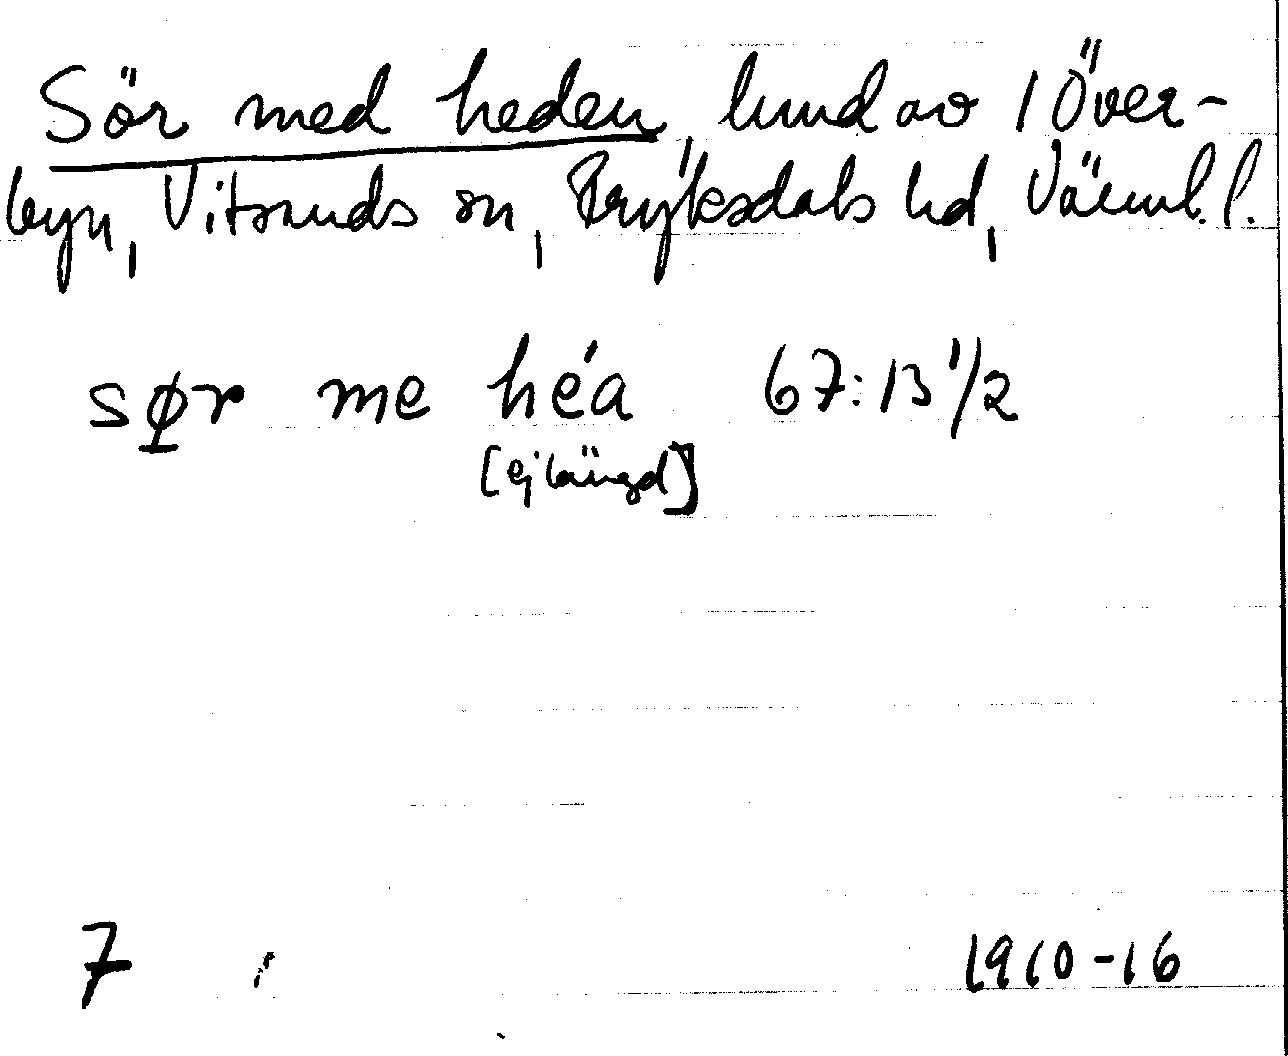 Sör med heden, lund av 1 Över-
byn, Vitsands sn, Fryksdals hd, Värml. l.
sør me héa 67:13 1/2
[ej längd]
7 1910-16